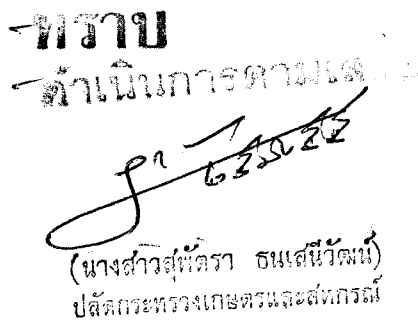 -ทราบ
-ดำเนินการตามเสนอ
(นางสาวสุพัตรา ธนเสนีวัฒน์)
ปลัดกระทรวงเกษตรและสหกรณ์